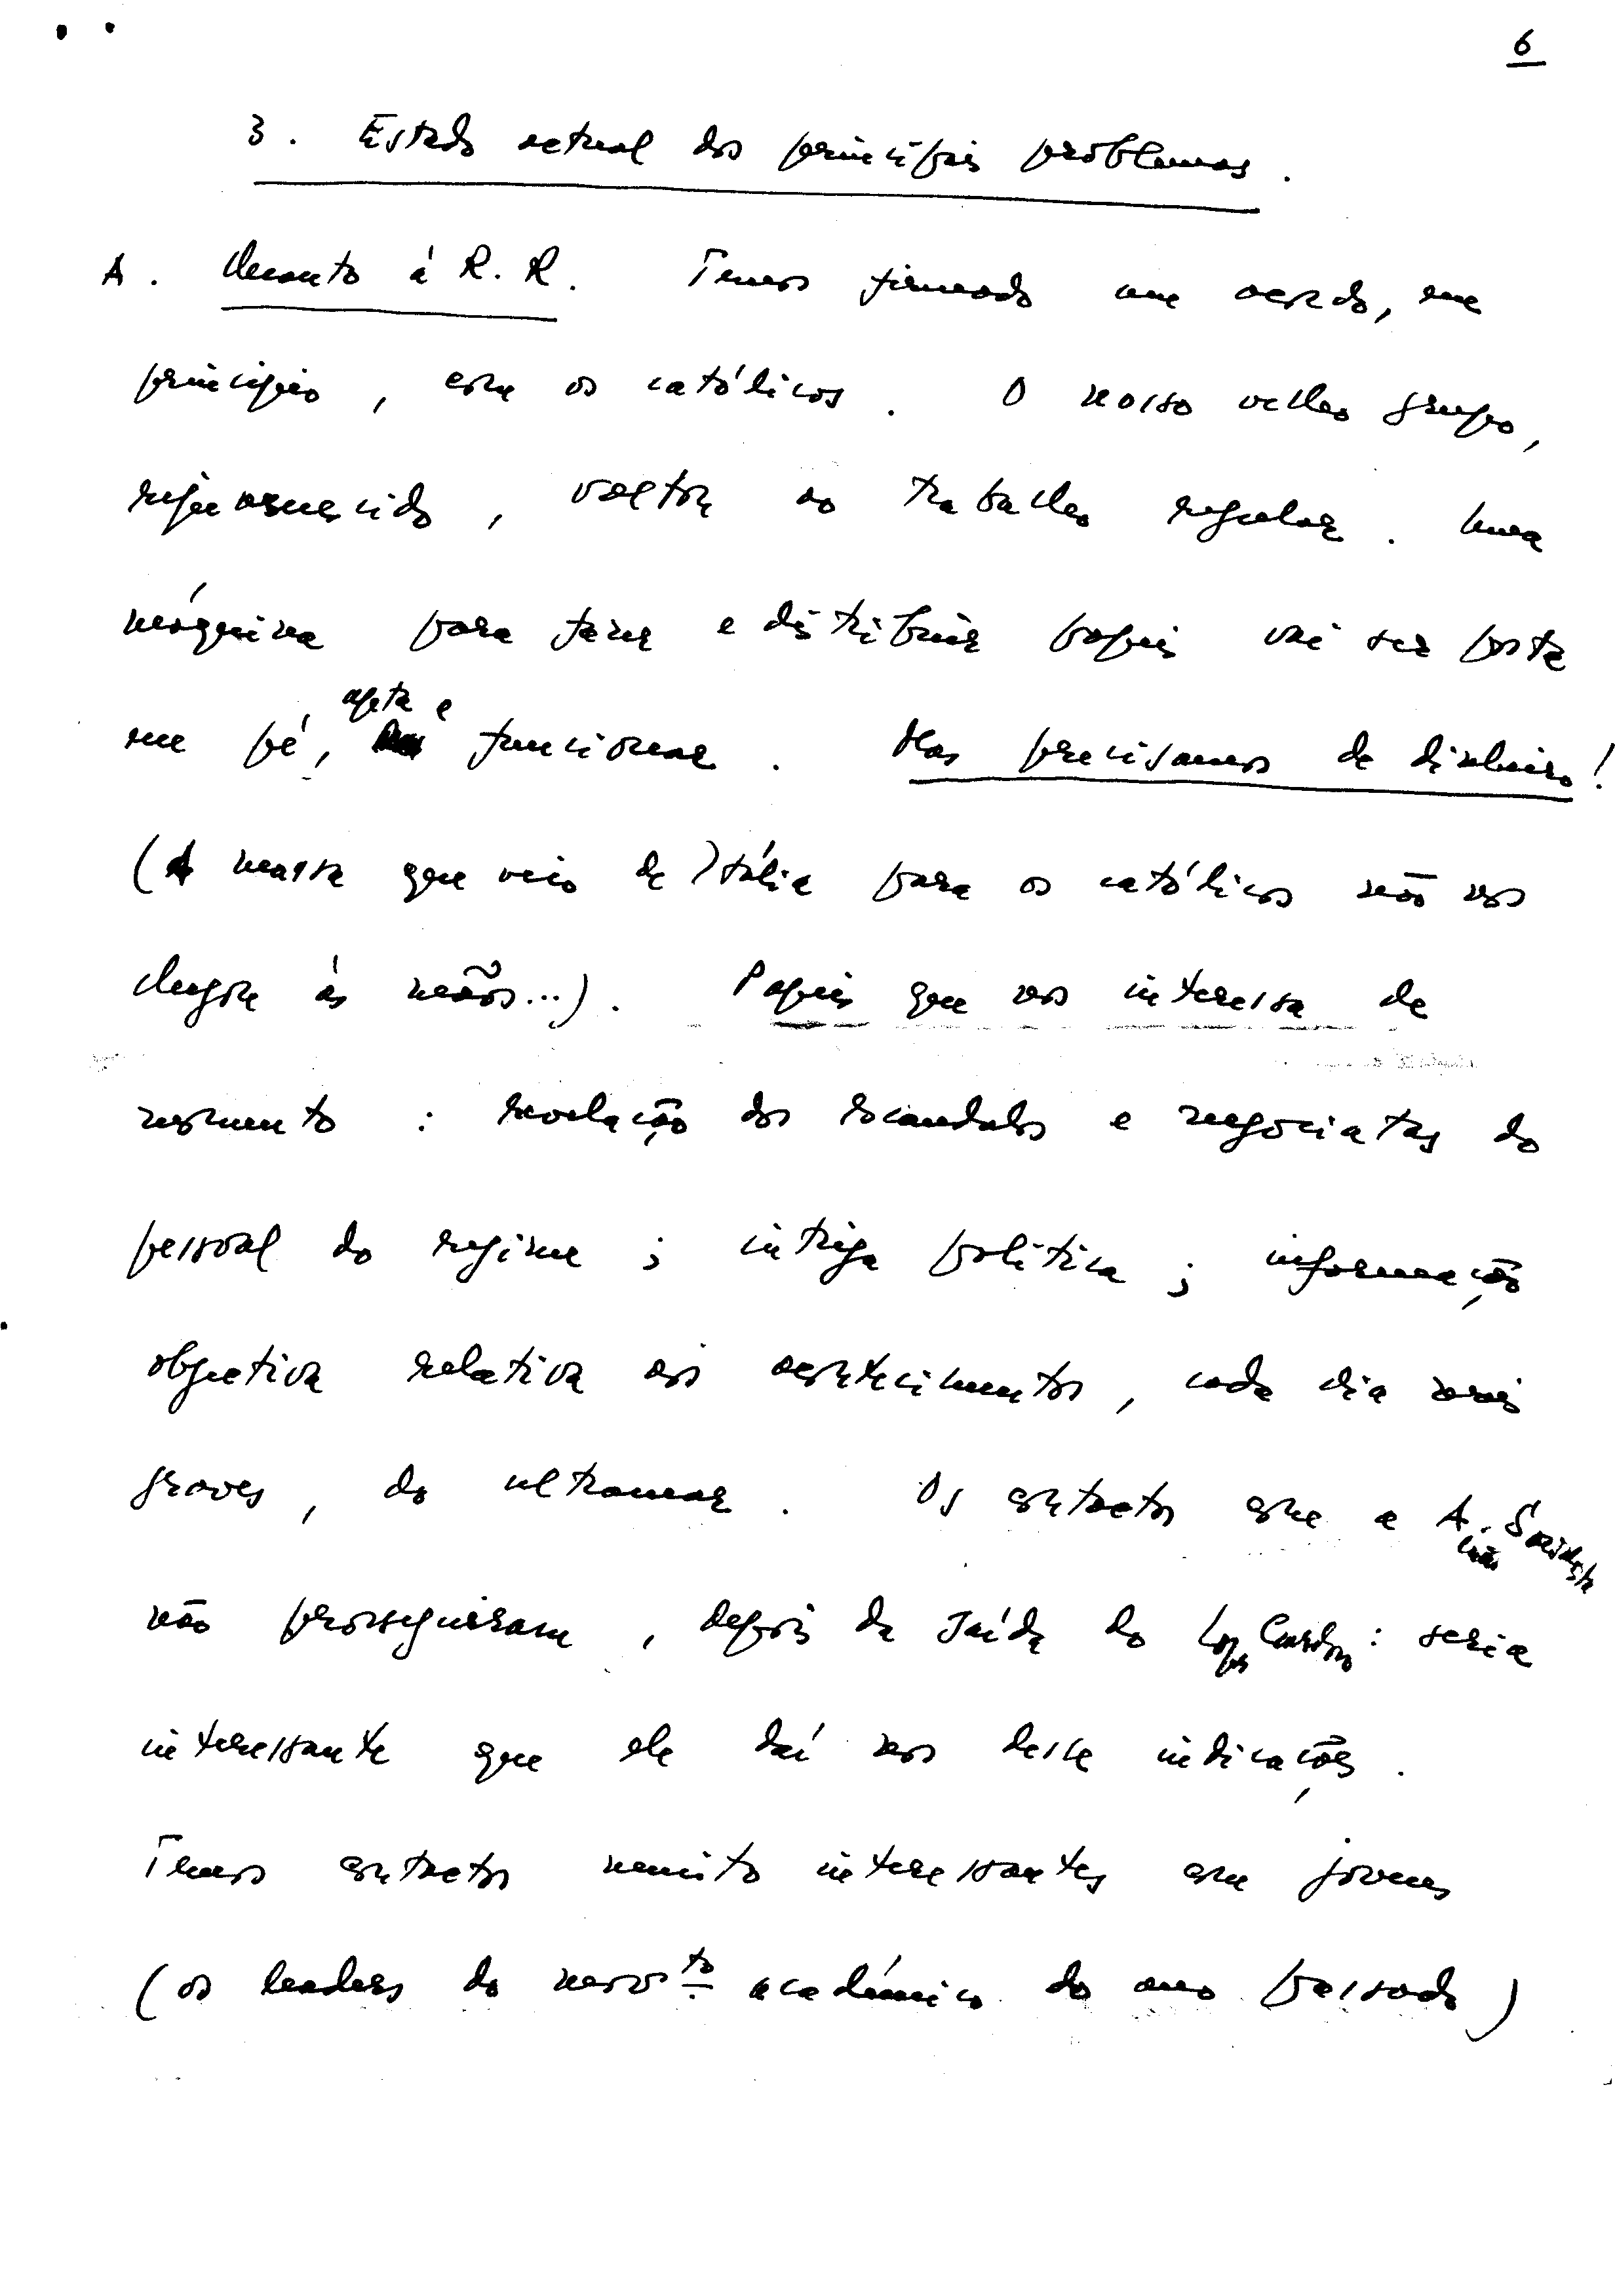 6
3. Estado actual dos principais problemas.
A. Quanto á R. R. Temos firmado um acordo, em
princípio, com os católicos. O nosso velho grupo,
rejuvenescido, voltou ao trabalho regular. Uma
máquina para fazer e distribuir papeis vai ser posta
em pé, apta a funcionar. Mas precisamos de dinheiro!
(A massa que veio de Itália para os católicos não nos
chegou às mãos...). Papeis que nos interessa de
momento: revelação dos escandalos e negociatas do
pessoal do regime; intriga politica; informação
objectiva relativa aos acontecimentos, cada dia mais
graves, do ultramar. Os contactos com a A. Socialista
não prosseguiram, depois da saída do Lopes Cardoso: seria
interessante que ele daí nos desse indicações.
Temos contactos muito interessantes com jovens
(os leaders do movto académico do ano passado)